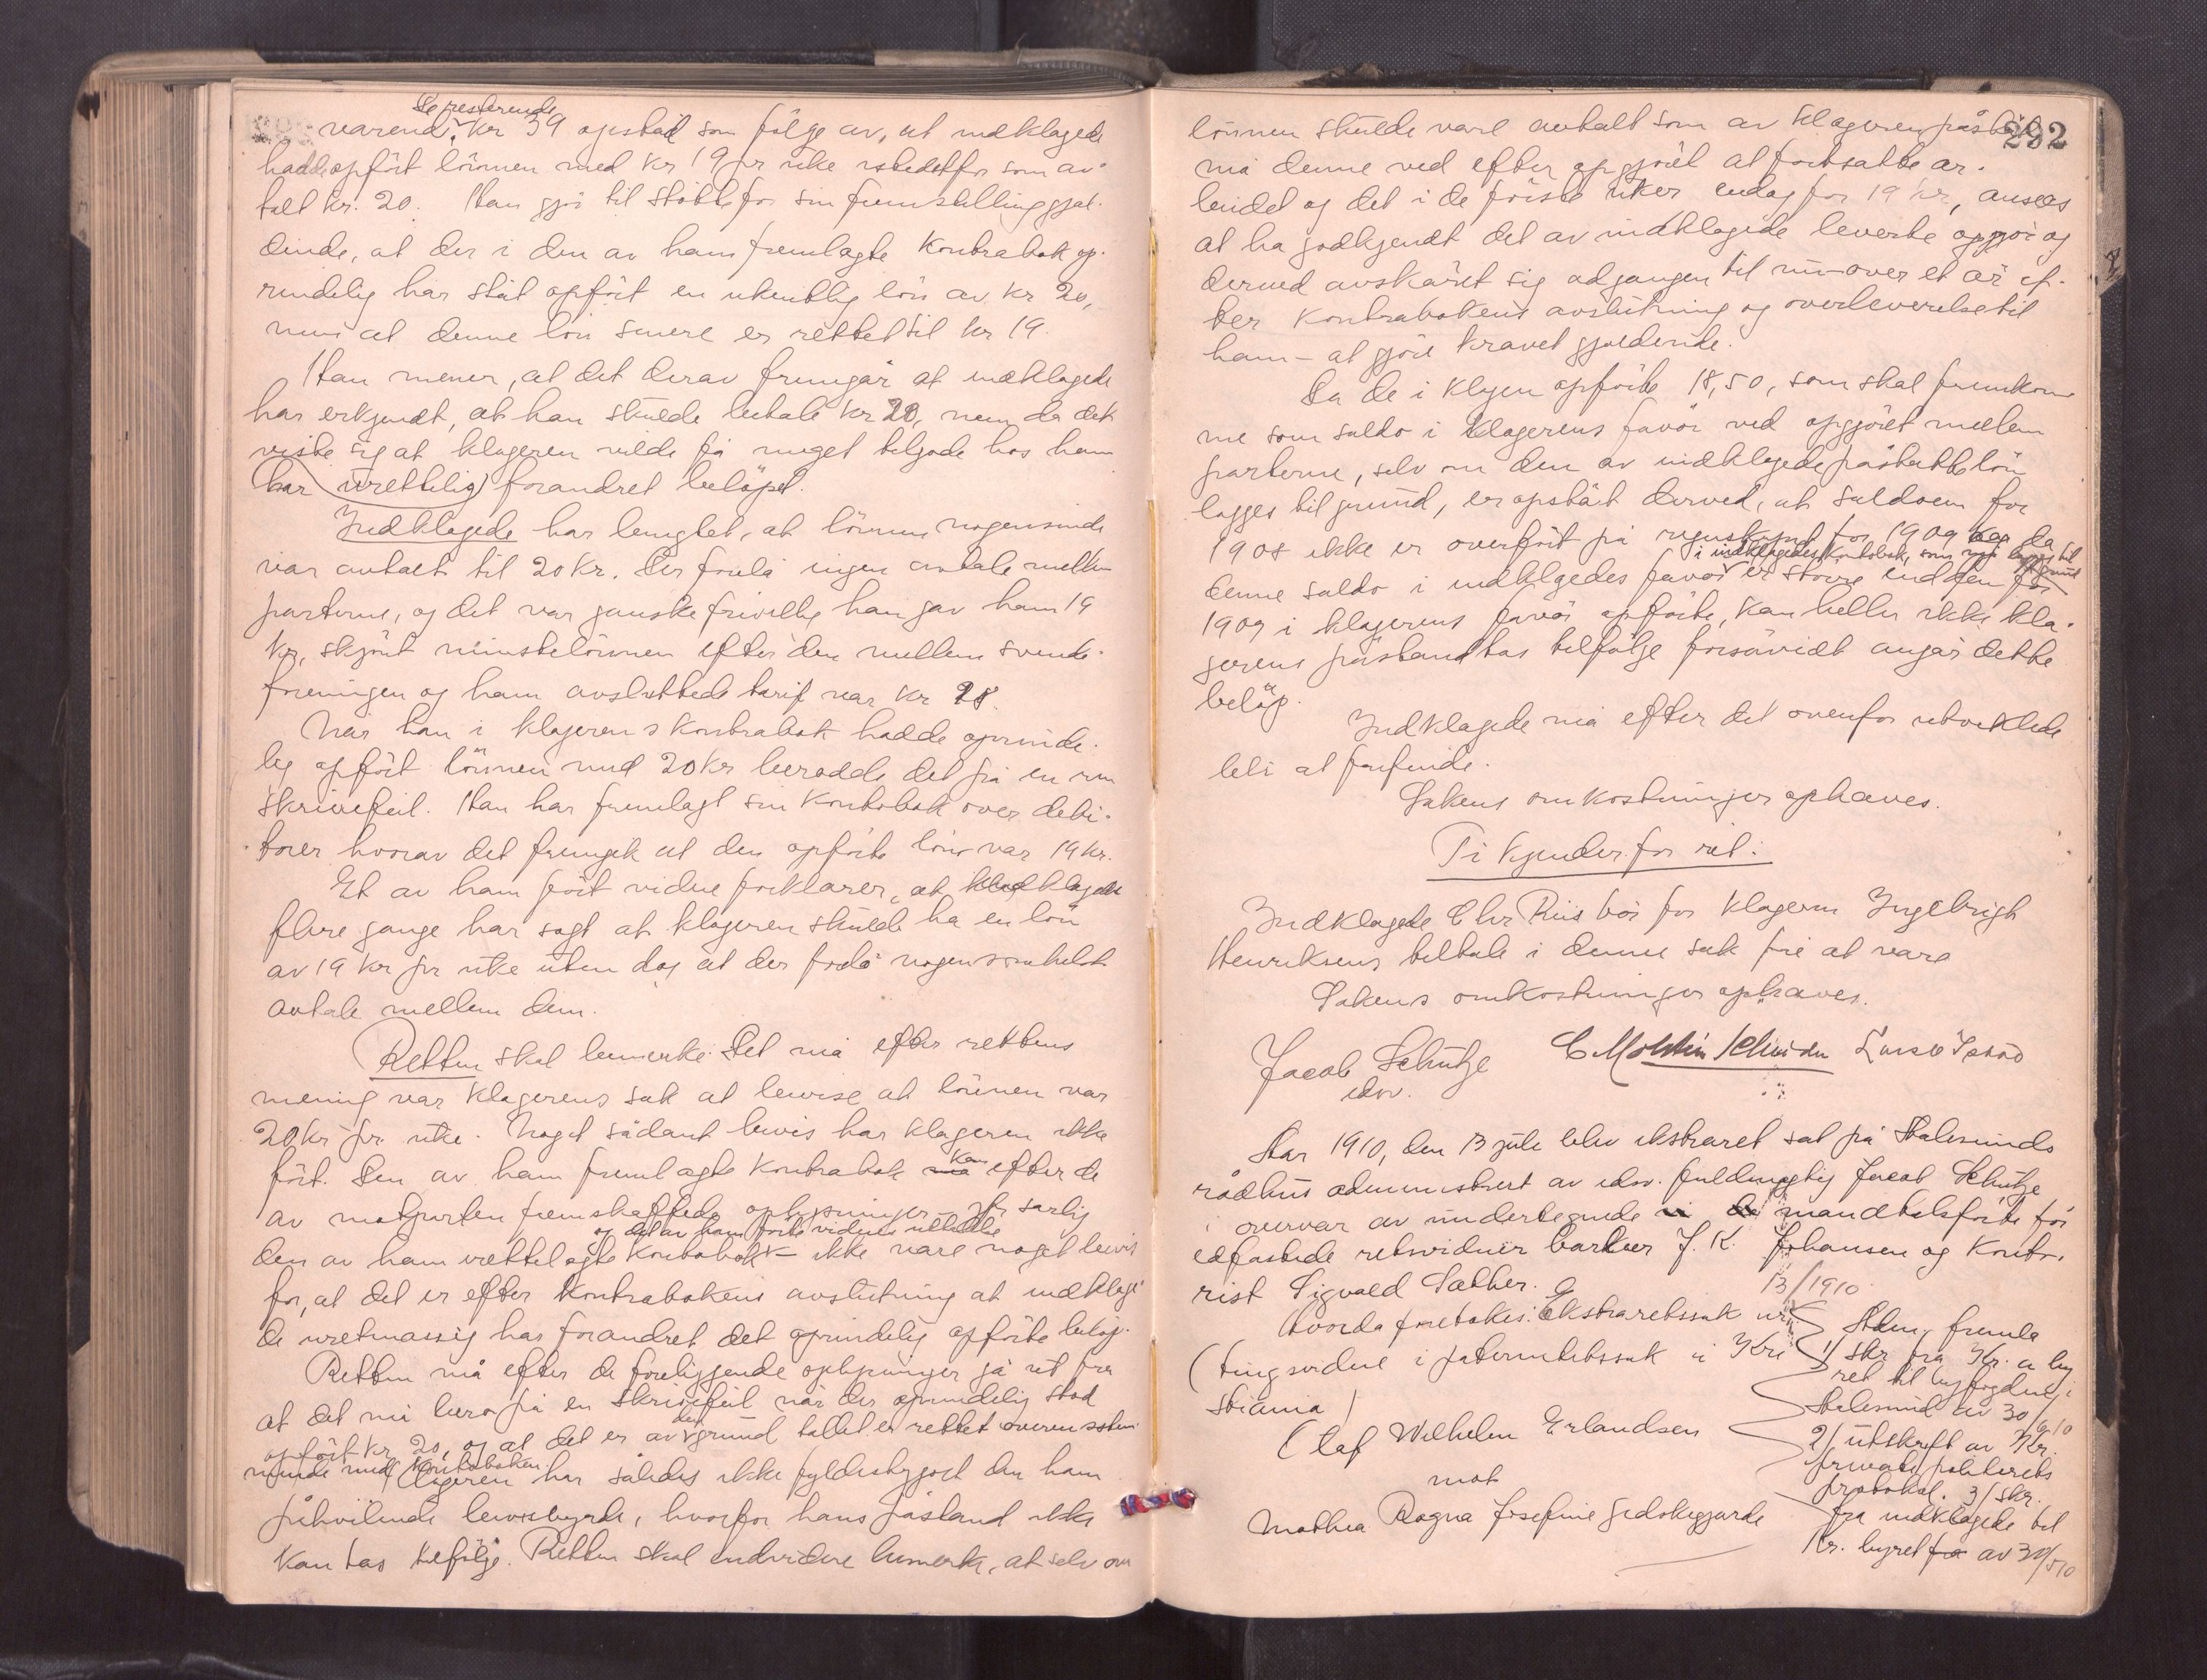 De resterende
varende. kr 39 opstod som følge av, at indklagede
hadde opført lønnen med kr 19 pr uke istedetfor som av-
talt kr. 20. Han gjør til støtte for sin fremstilling gjæl-
dende, at der i den av ham fremlagte Kontrabok op-
rindelig har ståt opført en ukentlig løn av kr 20,
men at denne løn senere er rettet til kr 19.
Han mener, at det derav fremgår at indklagede
har erkjendt, at han skulde betale kr 20, men da det
viste sig at klageren vilde få noget tilgode hos ham
har (urettelig) forandret beløpet.
Indklagede har benegtet, at lønnen nogensinde
var avtalt til 20 kr. Der forelå ingen avtale mellem
parterne, og det var ganske frivillig han gav ham 19
kr, skjønt minstelønnen efter den mellem svende-
foreningen og ham avsluttede tarif var kr 18.
Når han i klagerens kontrabok hadde oprinde-
lig opført lønnen med 20 kr berodde det på en ren
skrivefeil. Han har fremlagt sin Kontobok over debi-
torer hvorav det fremgik at den opførte løn var 19 kr.
Et av ham ført vidne forklarer, at indklagede
flere gange har sagt at klageren skulde ha en løn
av 19 kr pr uke uten dog at der forelå nogensomhelst
avtale mellem dem.
Retten skal bemerke: Det må efter rettens
mening var klagerens sak at bevise at lønnen var
20 kr pr uke. Noget sådant bevis har klageren ikke
ført. Den av ham fremlagte Kontrabok må kan efter de
av motparten fremskaffede oplysninger, særlig
og det av ham førte vidnes uttalelse
den av ham rettelagte Kontobok ikke være noget bevis
for, at det er efter Kontrabokens avslutning at indklage-
de uretmæssig har forandret det oprindelig opførte beløp.
Retten må efter de foreliggende oplysninger gå ut fra
at det må bero på en skrivefeil når der oprindelig stod
opført kr 20, og at det er av den grund tallet er rettet overensstem-
mende med Kontoboken. Klageren har således ikke fyldestgjort den ham
påhvilende bevisbyrde, hvorfor hans påstand ikke
kan tas tilfølge. Retten skal endvidere bemerke, at selv om
292
lønnen skulde være avtalt som av klageren påståt
må denne ved efter opgjøret at fortsætte ar-
beidet og det i de første uker endog for 19 kr, ansees
at ha godkjendt det av indklagede leverte opgjør og
derved avskåret sig adgangen til nu – over et år ef-
ter Kontrabokens avslutning og overleverelse til
ham – at gjøre kravet gjældende.
Da de i klagen opførte 18,50, som skal fremkom-
me som saldo i klagerens favør ved opgjøret mellem
parterne, selv om den av indklagede påståtte løn
lægges til grund, er opståt derved, at saldoen for
1908 ikke er overført på regnskapet for 1909 og da
i indklagedes Kontobok, som må lægges til grund
denne saldo i indklagedes favør er større end den for
1909 i klagerens favør opførte, kan heller ikke kla-
gerens påstand tas tilfølge forsåvidt angår dette
beløp.
Indklagede må efter det ovenfor utviklede
bli at frifinde.
Sakens omkostninger ophæves.
Ti kjendes for ret:
Indklagede Chr Riis bør for klageren Ingebrigt
Henriksens tiltale i denne sak fri at være
Sakens omkostninger ophæves.
Jacob Schutze
edsv.
Aar 1910, den 13 juli blev ekstraret sat på Aalesunds
rådhus administrert av edsv. fuldmægtig Jacob Schutze
i overvær av undertegnede i de mandtalsførte for
edfæstede retsvidner barber J. K. Johansen og Kontor-
rist Sigvald Sæther.
Hvorda foretokes: Ekstraretssak nr 13/1910
(tingsvidne i paternitetssak i Kri-
stiania)
Olaf Wilhelm Erlandsen
mot
Mathea Ragna Josefine Gedskegjærde
Adm. fremla
1/ skr fra Kr.a by
ret til byfogden i
Aalesund av 30/6 10
2/ utskrift av Kr.
private politirets
protokol. 3/ skr.
fra indklagede til
Kr. byret fra av 30/5 10